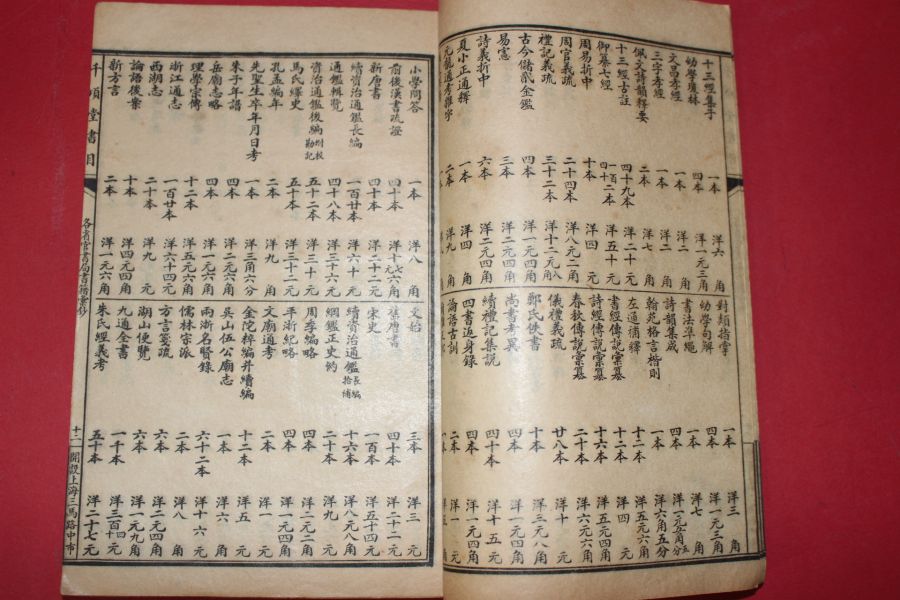 十三經集字 一本 洋六角
幼學瓊林 四本 洋一元三角
文昌孝經 一本 洋二角
三字孝經 一本
佩文詩韻釋要 二本 洋七角
十三經古註 四十九本 洋二十元
御纂七經
周易折中 十本 洋四元
周官義疏 二十四本 洋八元二角
禮記義疏 三十二本 洋十二元八角
古今儲貳金鑑 四本 洋一元四角
易憲 三本 洋二元四角
詩義折中 六本 洋二元四角
夏小正通釋 一本 洋四角
通考雜字 洋九角
對類指掌 一本 洋三角
幼學句解 四本 洋一元三角
書法準繩 一本 洋七角
詩韻集成 四本
翰苑格言楷則 一本 洋六角五分
左通補釋 十二本 洋五元四角
書經傳說彙纂 十二本 洋四元
詩經傳說彙纂 十六本 洋五元六角
春秋傳說彙纂 二十本 洋六元六角
儀禮義疏 廿八本 洋十元
鄭氏佚書 十本 洋三元八角
尚書考異 二本 洋一元四角
續禮記集說 四十本 洋十五元
四書反身錄 四本 洋一元四角
論語古訓 二本 洋一元
小學問答 一本 洋八角
前後漢書疏證 四十本 洋十七元六角
新唐書 四十本 洋二十二元
續資治通鑑長編 一百廿本 洋六十元
通鑑輯覽 四十八本 洋三十六元
資治通鑑後編 附校勘記 五十二本 洋三十元
馬氏繹史 五十本 洋三十二元
孔孟編年 二本 洋九角
先聖生卒年月日考 一本 洋三角六分
朱子年譜 四本 洋二元六角
岳廟志略 四本 洋一元六角
理學宗傳 十二本 洋五元六角
浙江通志 一百廿本 洋六十四元
西湖志 二十本 洋九元
論語後案 十本 洋四元四角
新方言 二本 洋一元六角
文始 三本 洋三角
舊唐書 四十本 洋二十二元
宋史 一百本 洋五十四元
續資治通鑑長編拾補 十六本 洋八元八角
綱鑑正史約 二十本 洋九元
周季編略 四本 洋一元四角
平浙紀略 四本 洋一元四角
文廟通考 二本 洋一元
金陀稡編并續編 十二本 洋五元
吳山伍公廟志 一本 洋六角
兩浙名賢錄 六十二本 洋十六元
儒林宗派 二本 洋八角
方言箋疏 六本 洋二元四角
湖山便覽 六本 洋一元九角
九通全書 一千本 洋三百十四元
朱氏經義考 五十本 洋二十七元
千頃堂書目
各省官書局書籍彙鈔
十二
開設上海三馬路中市